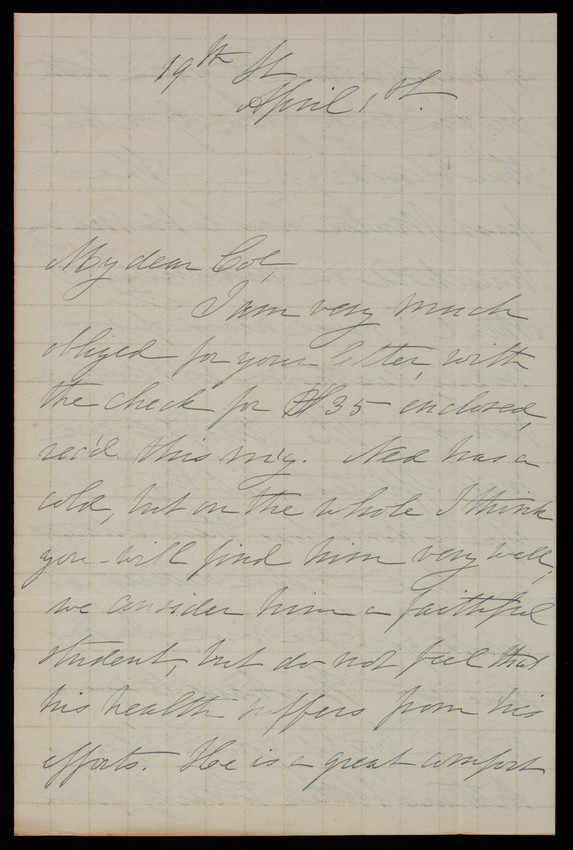 19th St
April 1st.
My dear Col,
I am very much
obliged for your letter, with
the check for $35 enclosed,
rec'd this m'g. Ned has a
cold, but on the whole I think
you will find him very well,
we consider him a faithful
student, but do not feel that
his health suffers from his
efforts. He is a great comfort